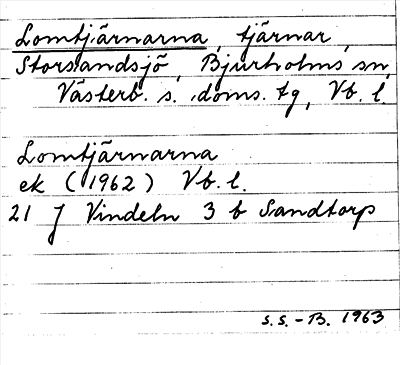 Lomtjärnarna, tjärnar,
Storsandsjö, Bjurholms sn,
Västerb. s. doms. tg, Vb. l.
Lomtjärnarna
ek (1962) Vb. l.
21 J Vindeln 3 b Sandtorp
S.S. - B. 1963